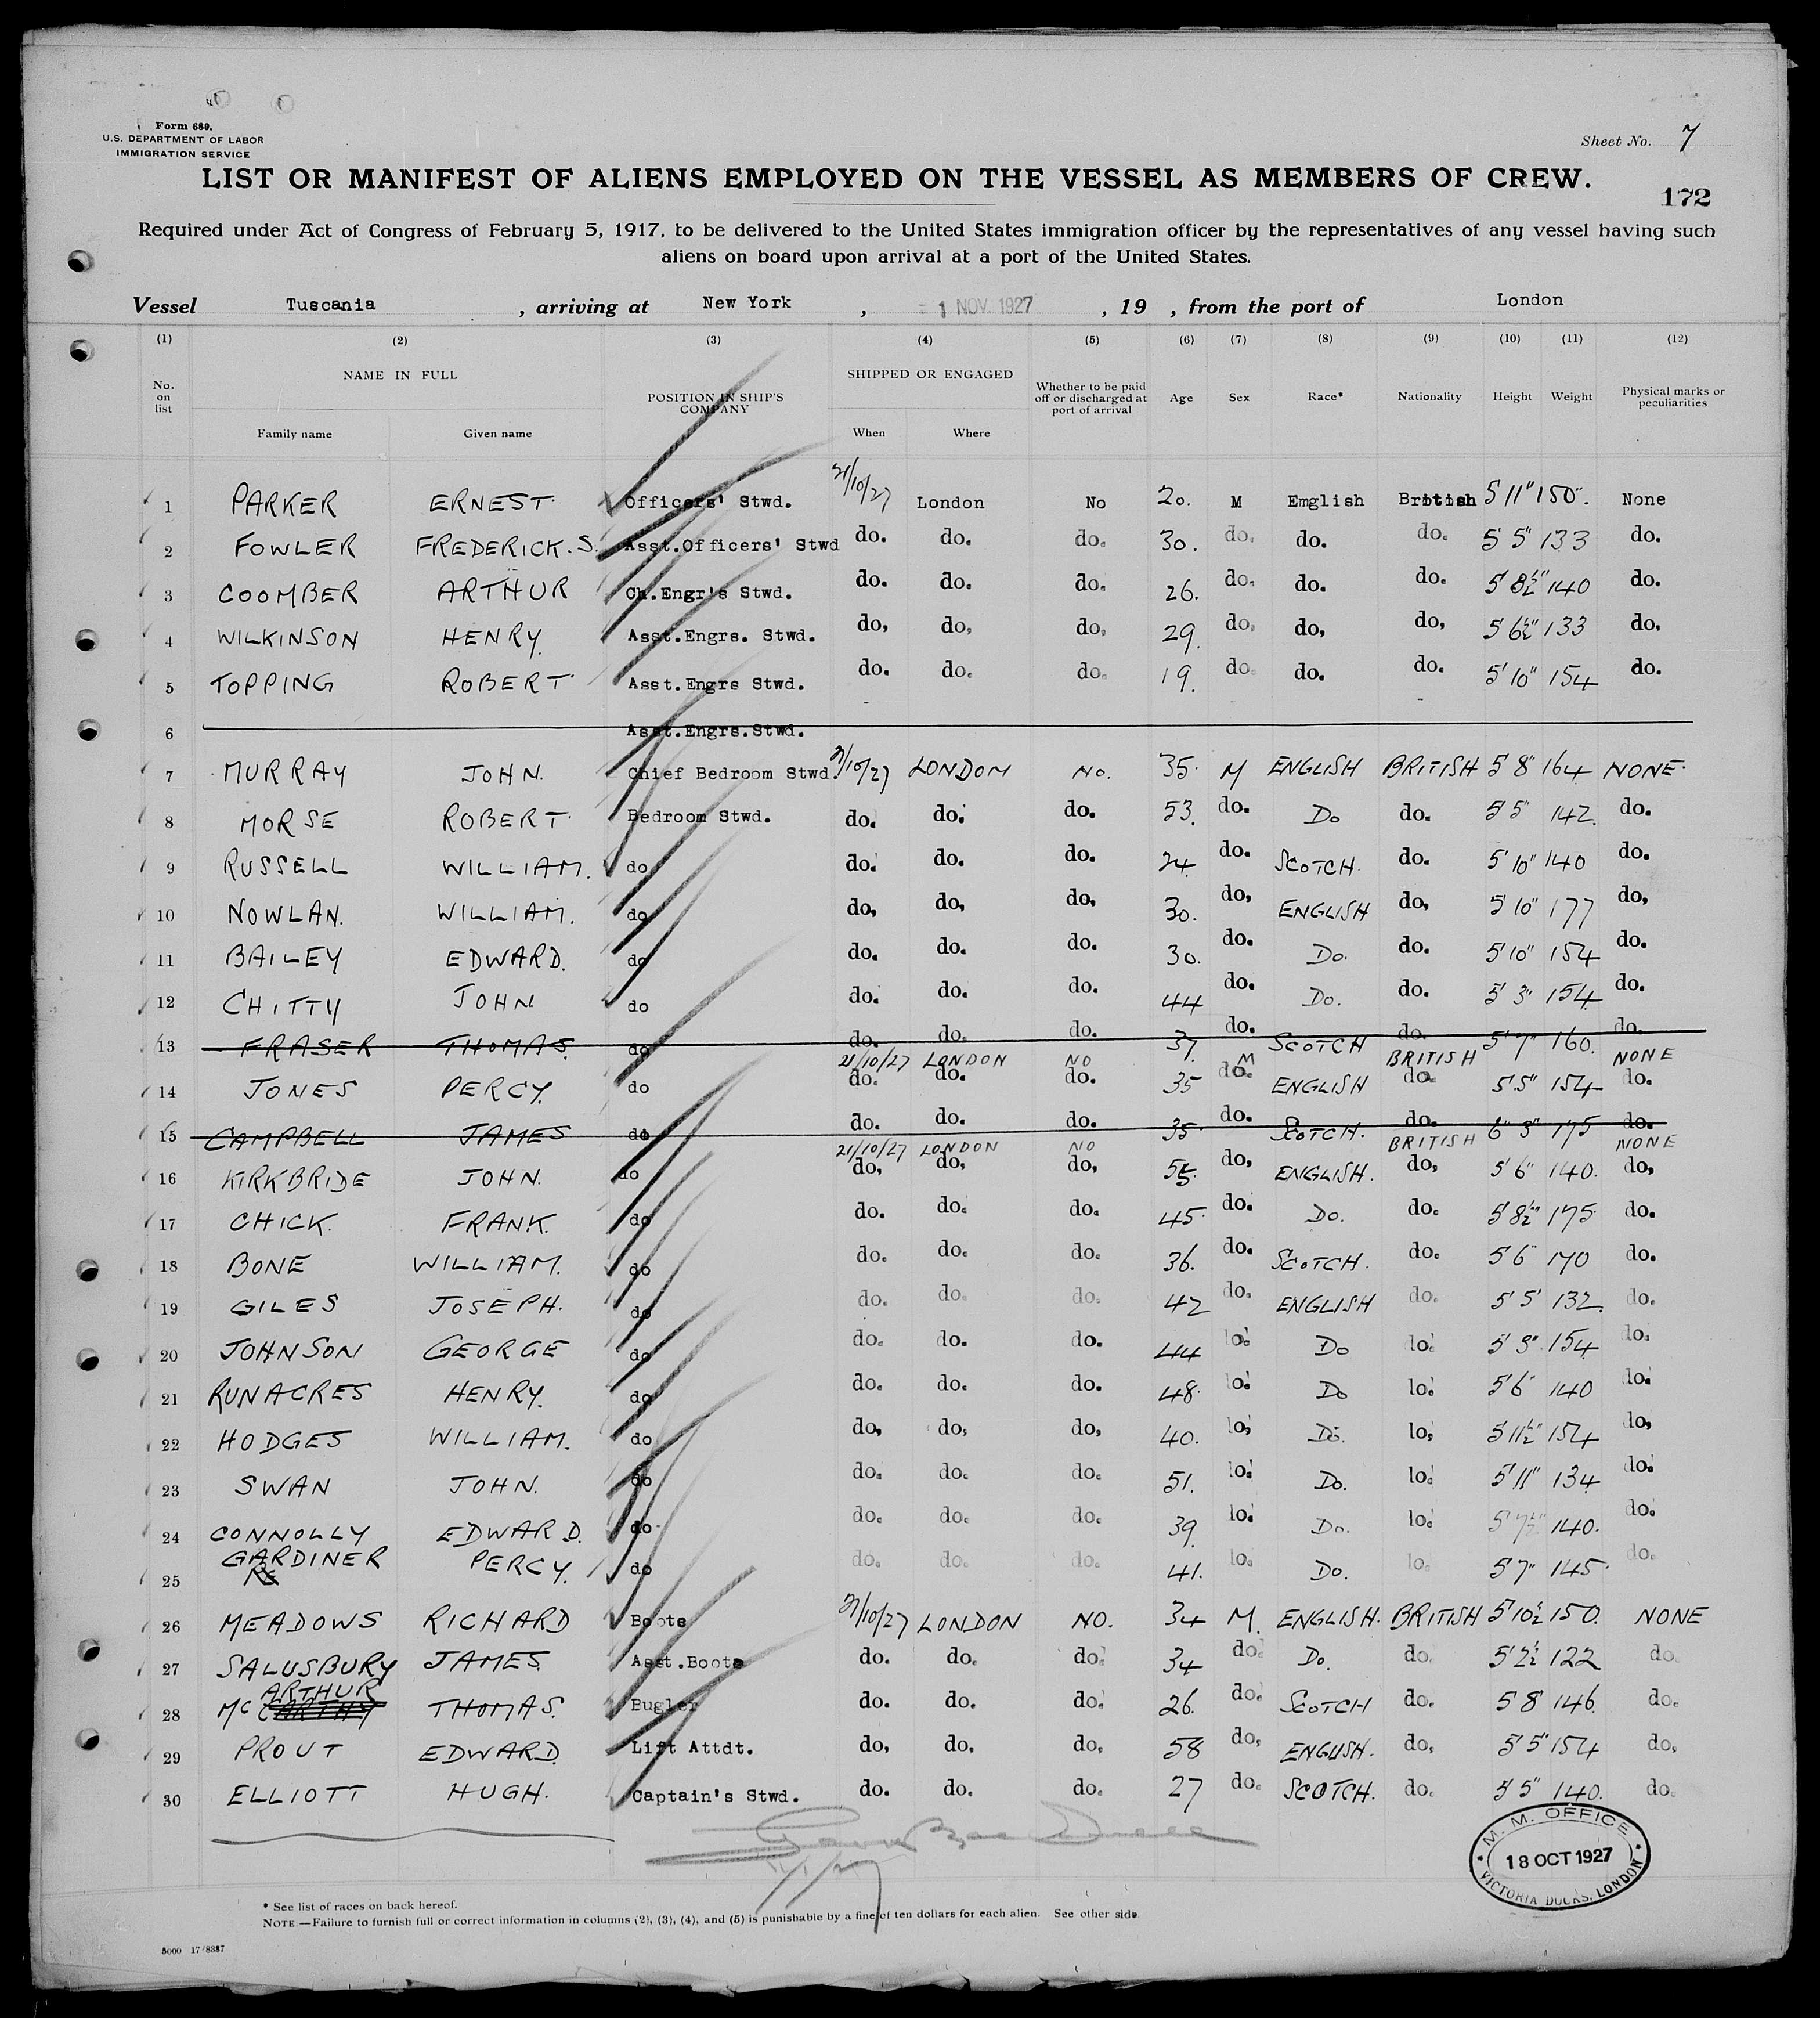 Form 689.
U.S. DEPARTMENT OF LABOR
IMMIGRATION SERVICE
Sheet No. 7
LIST OR MANIFEST OF ALIENS EMPLOYED ON THE VESSEL AS MEMBERS OF CREW.
172
Required under Act of Congress of February 5, 1917, to be delivered to the United States immigration officer by the representatives of any vessel having such
aliens on board upon arrival at a port of the United States.
Vessel Tuscania , arriving at New York , 1 NOV. 1927 , 19 , from the port of London
(1) (2) (3) (4) (5) (6) (7) (8) (9) (10) (11) (12)
No. on list NAME IN FULL POSITION IN SHIP'S COMPANY SHIPPED OR ENGAGED Whether to be paid off or discharged at port of arrival Age Sex Race* Nationality Height Weight Physical marks or peculiarities
Family name Given name When Where
1 PARKER ERNEST Officers' Stwd. 21/10/27 London No 20. M Emglish British 5'11" 150. None
2 FOWLER FREDERICK.S. Asst.Officers' Stwd do. do. do. 30. do. do. do. 5'5" 133 do.
3 COOMBER ARTHUR Ch.Engr's Stwd. do. do. do. 26. do. do. do. 5'8½" 140 do.
4 WILKINSON HENRY. Asst.Engrs. Stwd. do, do, do, 29. do, do, do, 5'6½" 133 do,
5 TOPPING ROBERT Asst.Engrs Stwd. do. do. do. 19. do. do. do. 5'10" 154 do.
6 Asst.Engrs.Stwd.
7 MURRAY JOHN. Chief Bedroom Stwd. 21/10/27 LONDON NO. 35. M ENGLISH BRITISH 5'8" 164 NONE.
8 MORSE ROBERT. Bedroom Stwd. do. do. do. 53. do. Do do. 5'5" 142. do.
9 RUSSELL WILLIAM. do do. do. do. 24. do. SCOTCH. do. 5'10" 140 do.
10 NOWLAN. WILLIAM. do do, do, do, 30. do, ENGLISH do, 5'10" 177 do,
11 BAILEY EDWARD. do do. do. do. 30. do. Do. do. 5'10" 154 do.
12 CHITTY JOHN do do. do. do. 44 do. Do. do. 5'3" 154. do.
13 FRASER THOMAS. do do. do. do. 37. do. SCOTCH do. 5'7" 160. do.
21/10/27 LONDON NO M BRITISH NONE
14 JONES PERCY. do do. do. do. 35 do. ENGLISH do. 5'5" 154 do.
15 CAMPBELL JAMES do do. do. do. 35 do. SCOTCH. do. 6"3" 175 do.
21/10/27 LONDON NO BRITISH NONE
16 KIRKBRIDE JOHN. do do, do, do, 55. do, ENGLISH. do, 5'6" 140. do,
17 CHICK. FRANK. do do. do. do. 45. do. Do. do. 5'8½" 175 do.
18 BONE WILLIAM. do do. do. do. 36. do. SCOTCH. do. 5'6" 170 do.
19 GILES JOSEPH. do do. do. do. 42 do. ENGLISH do. 5'5' 132. do.
20 JOHNSON GEORGE do do. do. do. 44 lo. Do lo. 5'3" 154 do.
21 RUNACRES HENRY. do do. do. do. 48. lo. Do lo. 5'6" 140 do.
22 HODGES WILLIAM. do do, do, do, 40. lo, Do. lo, 5'11½" 154 do,
23 SWAN JOHN. do do. do. do. 51. lo. Do. lo. 5'11" 134 do.
24 CONNOLLY EDWARD. do do. do. do. 39. lo. Do. lo. 5'7½" 140. do.
25 GARDINER PERCY. do do. do. do. 41. lo. Do. lo. 5'7" 145 do.
26 MEADOWS RICHARD Boots 21/10/27 LONDON NO. 34 M. ENGLISH. BRITISH 5'10½ 150. NONE
27 SALUSBURY JAMES. Asst.Boots do. do. do. 34 do. Do. do. 5'2½ 122 do.
ARTHUR
28 McCARTHY THOMAS. Bugler do. do. do. 26. do. SCOTCH do. 5'8' 146. do.
29 PROUT EDWARD. Lift Attdt. do, do, do, 58 do, ENGLISH. do, 5'5" 154 do,
30 ELLIOTT HUGH. Captain's Stwd. do. do. do. 27 do. SCOTCH. do. 5'5" 140. do.
M. M. OFFICE
18 OCT 1927
VICTORIA DOCKS. LONDON
* See list of races on back hereof.
NOTE.—Failure to furnish full or correct information in columns (2), (3), (4), and (5) is punishable by a fine of ten dollars for each alien. See other side.
5000 17/8387